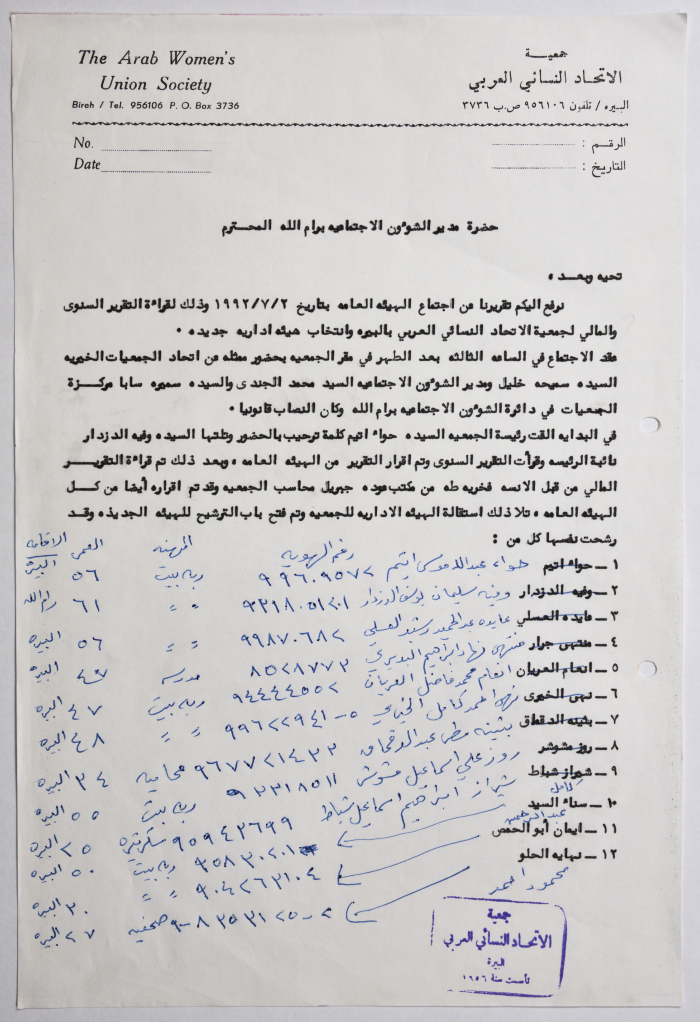 The Arab Women's
Union Society
Bireh / Tel. 956106 P. O. Box 3736
جمعية
الاتحاد النسائي العربي
البيره / تلفون ٩٥٦١٠٦ ص.ب ٣٧٣٦
No.
Date
الرقم :
التاريخ :
حضرة مدير الشوءون الاجتماعيه برام الله المحترم
تحيه وبعد ،
نرفع اليكم تقريرنا عن اجتماع الهيئه العامه بتاريخ ١٩٩٢/٧/٢ وذلك لقراءة التقرير السنوى
والمالي لجمعية الاتحاد النسائي العربي بالبيره وانتخاب هيئه اداريه جديده ٠
عقد الاجتماع في الساعه الثالثه بعد الظهر في مقر الجمعيه بحضور ممثله عن اتحاد الجمعيات الخيريه
السيده سميحه خليل ومدير الشوءون الاجتماعيه السيد محمد الجندى والسيده سميره سابا مركزة
الجمعيات في دائرة الشوءون الاجتماعيه برام الله وكان النصاب قانونيا ٠
في البدايه القت رئيسة الجمعيه السيده حواء اتيم كلمة ترحيب بالحضور وتلتها السيده وفيه الدزدار
نائبة الرئيسه وقرأت التقرير السنوى وتم اقرار التقرير من الهيئه العامه ، وبعد ذلك تم قراءة التقرير
المالي من قبل الانسه فخريه طه من مكتب عوده جبريل محاسب الجمعيه وقد تم اقراره أيضا من كل
الهيئه العامه ، تلا ذلك استقالة الهيئه الاداريه للجمعيه وتم فتح باب الترشيح للهيئه الجديده وقد
رشحت نفسها كل من :
رقم الهويه المهنه العمر الاقامه
١ ــ حواء اتيم حواء عبدالله موسى اتيم ٩٩٦٠٩٥٧٢ ربة بيت ٥٦ البيره
٢ ــ وفيه الدزدار وفيه سليمان يوسف الدزدار ٩٣١٨٠٥١٢٠١ " " ٦١ رام الله
٣ ــ عايده العسلي عايده عبدالحميد رشيد العسلي ٩٩٨٧٠٦٨٢ " " ٥٦ البيره
٤ ــ منتهى جرار منتهى ابراهيم ٨٥٢٨٧٧٣ مدرسه البيره
٥ ــ انعام العريان انعام محمد فاضل العريان ٩٤٤٤٤٥٥٢ ربة بيت ٤٧ البيره
٦ ــ نهى الخيرى نهى احمد كامل الخيري ٩٩٦٢٢٩٤١-٥ " " ٤٨ البيره
٧ ــ بثينه الدقماق بثينه عبد الدقماق ٩٦٧٧٢١٤٣٣ محاميه ٣٤ البيره
٨ ــ روز مشوشر روز علي اسماعيل ٩٣٣١٨٥١١ ربة بيت ٥٥ البيره
٩ ــ شيراز شباط شيراز ابراهيم اسماعيل شباط ٩٥٩٤٣٦٩٩ سكرتيره ٢٥ البيره
١٠ ــ سناء السيد كامل ربة بيت ٥٠ البيره
١١ ــ ايمان أبو الحمص عبدالرحمن ٩٠٤٢٦٣١٠٤ " " ٣٠ البيره
١٢ ــ نهايه الحلو محمود احمد صحفيه ٢٧ البيره
جمعية
الاتحاد النسائي العربي
البيرة
تأسست سنة ١٩٥٦